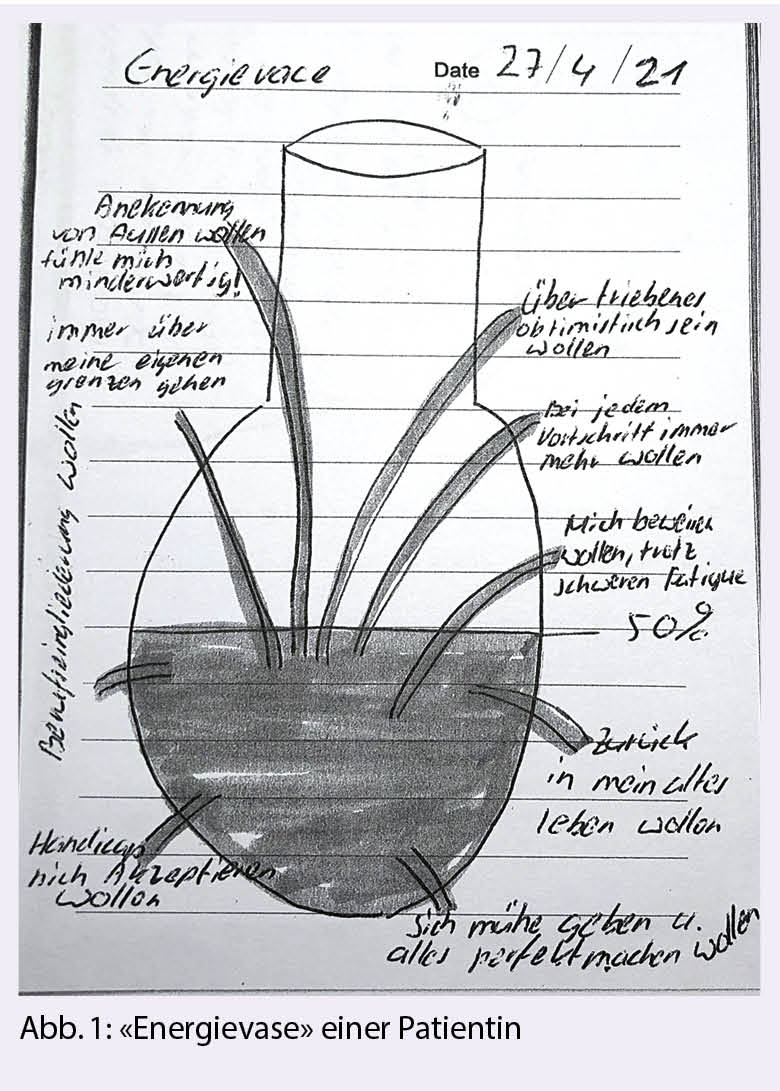 Energievace
Date 27/4/21
Anekennung
von Aussen wollen
fühle mich
minderwertig!
immer über
meine eigenen
grenzen gehen
Berufseingliederung wollen
Handicap
nich Akzeptieren
wollen
Übertriebenes
obtimistisch sein
wollen
Bei jedem
Vortschritt immer
mehr wollen
Mich beweisen
wollen, trotz
schweren Fatigue
50%
Zurück
in mein altes
leben wollen
Sich mühe geben u.
alles perfekt machen wollen
Abb. 1: «Energievase» einer Patientin